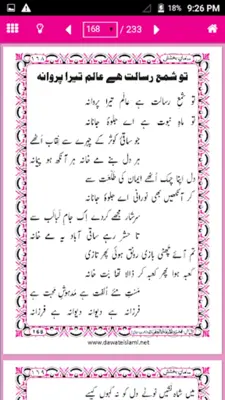 18% 9:26 PM
168 / 233
تو شمع رسالت ھے عالم تیرا پروانہ
تو شمع رسالت ہے عالم تیرا پروانہ
تو ماہِ نبوت ہے اے جلوۂ جانانہ
جو ساقیٔ کوثر کے چہرے سے نقاب اُٹھے
ہر دل بنے مے خانہ ہر آنکھ ہو پیمانہ
دل اپنا چمک اُٹھے ایمان کی طلعت سے
کر آنکھیں بھی نورانی اے جلوۂ جانانہ
سرشار مجھے کردے اِک جامِ لبالب سے
تا حشر رہے ساقی آباد یہ مے خانہ
تم آئے چھٹی بازی رونق ہوئی پھر تازی
کعبہ ہوا پھر کعبہ کر ڈالا تھا بُت خانہ
مستِ مئے اُلفت ہے مدہوشِ محبت ہے
فرزانہ ہے دیوانہ دیوانہ ہے فرزانہ
168
www.dawateislami.net
میں شاہ نشیں ٹوٹے دل کو نہ کہوں کیسے